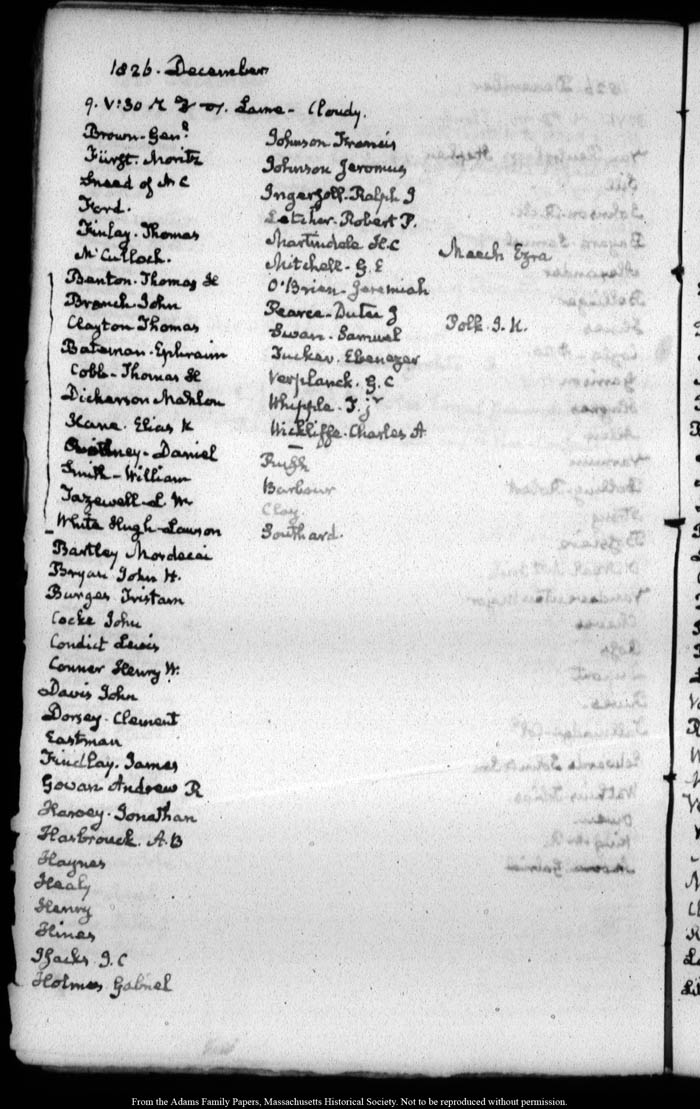 1826. December
9. V:30 Lame - Cloudy.
Brown - Genl
Fürst. Moritz
Sneed of N C
Ford.
Finlay. Thomas
McCulloch.
Benton. Thomas H
Branch John
Clayton Thomas
Bateman. Ephraim
Cobb - Thomas W
Dickerson Mahlon
Kane. Elias K
Daniel
Smith - William
Tazewell - L. W
White Hugh - Lawson
Bartley Mordecai
Bryan John H.
Burges Tristam
Cocke John
Condict Lewis
Conner Henry W.
Davis John
Dorsey. Clement
Eastman
Findlay. James
Govan Andrew R
Harvey. Jonathan
Hasbrouck A. B
Haynes
Healy
Henry
Hines
Isacks. J. C
Holmes Gabriel
Johnson Francis
Johnson Jeromus
Ingersoll - Ralph I
Letcher. Robert P.
Martindale H. C
Mitchell - G. E
O'Brien - Jeremiah
Pearce - Dutee J
Swan - Samuel
Tucker. Ebenezer
Verplanck. G. C
Whipple. T. jr
Wickliffe. Charles A
Rush
Barbour
Clay.
Southard.
Meech Ezra
Polk. J. K.
From the Adams Family Papers, Massachusetts Historical Society. Not to be reproduced without permission.